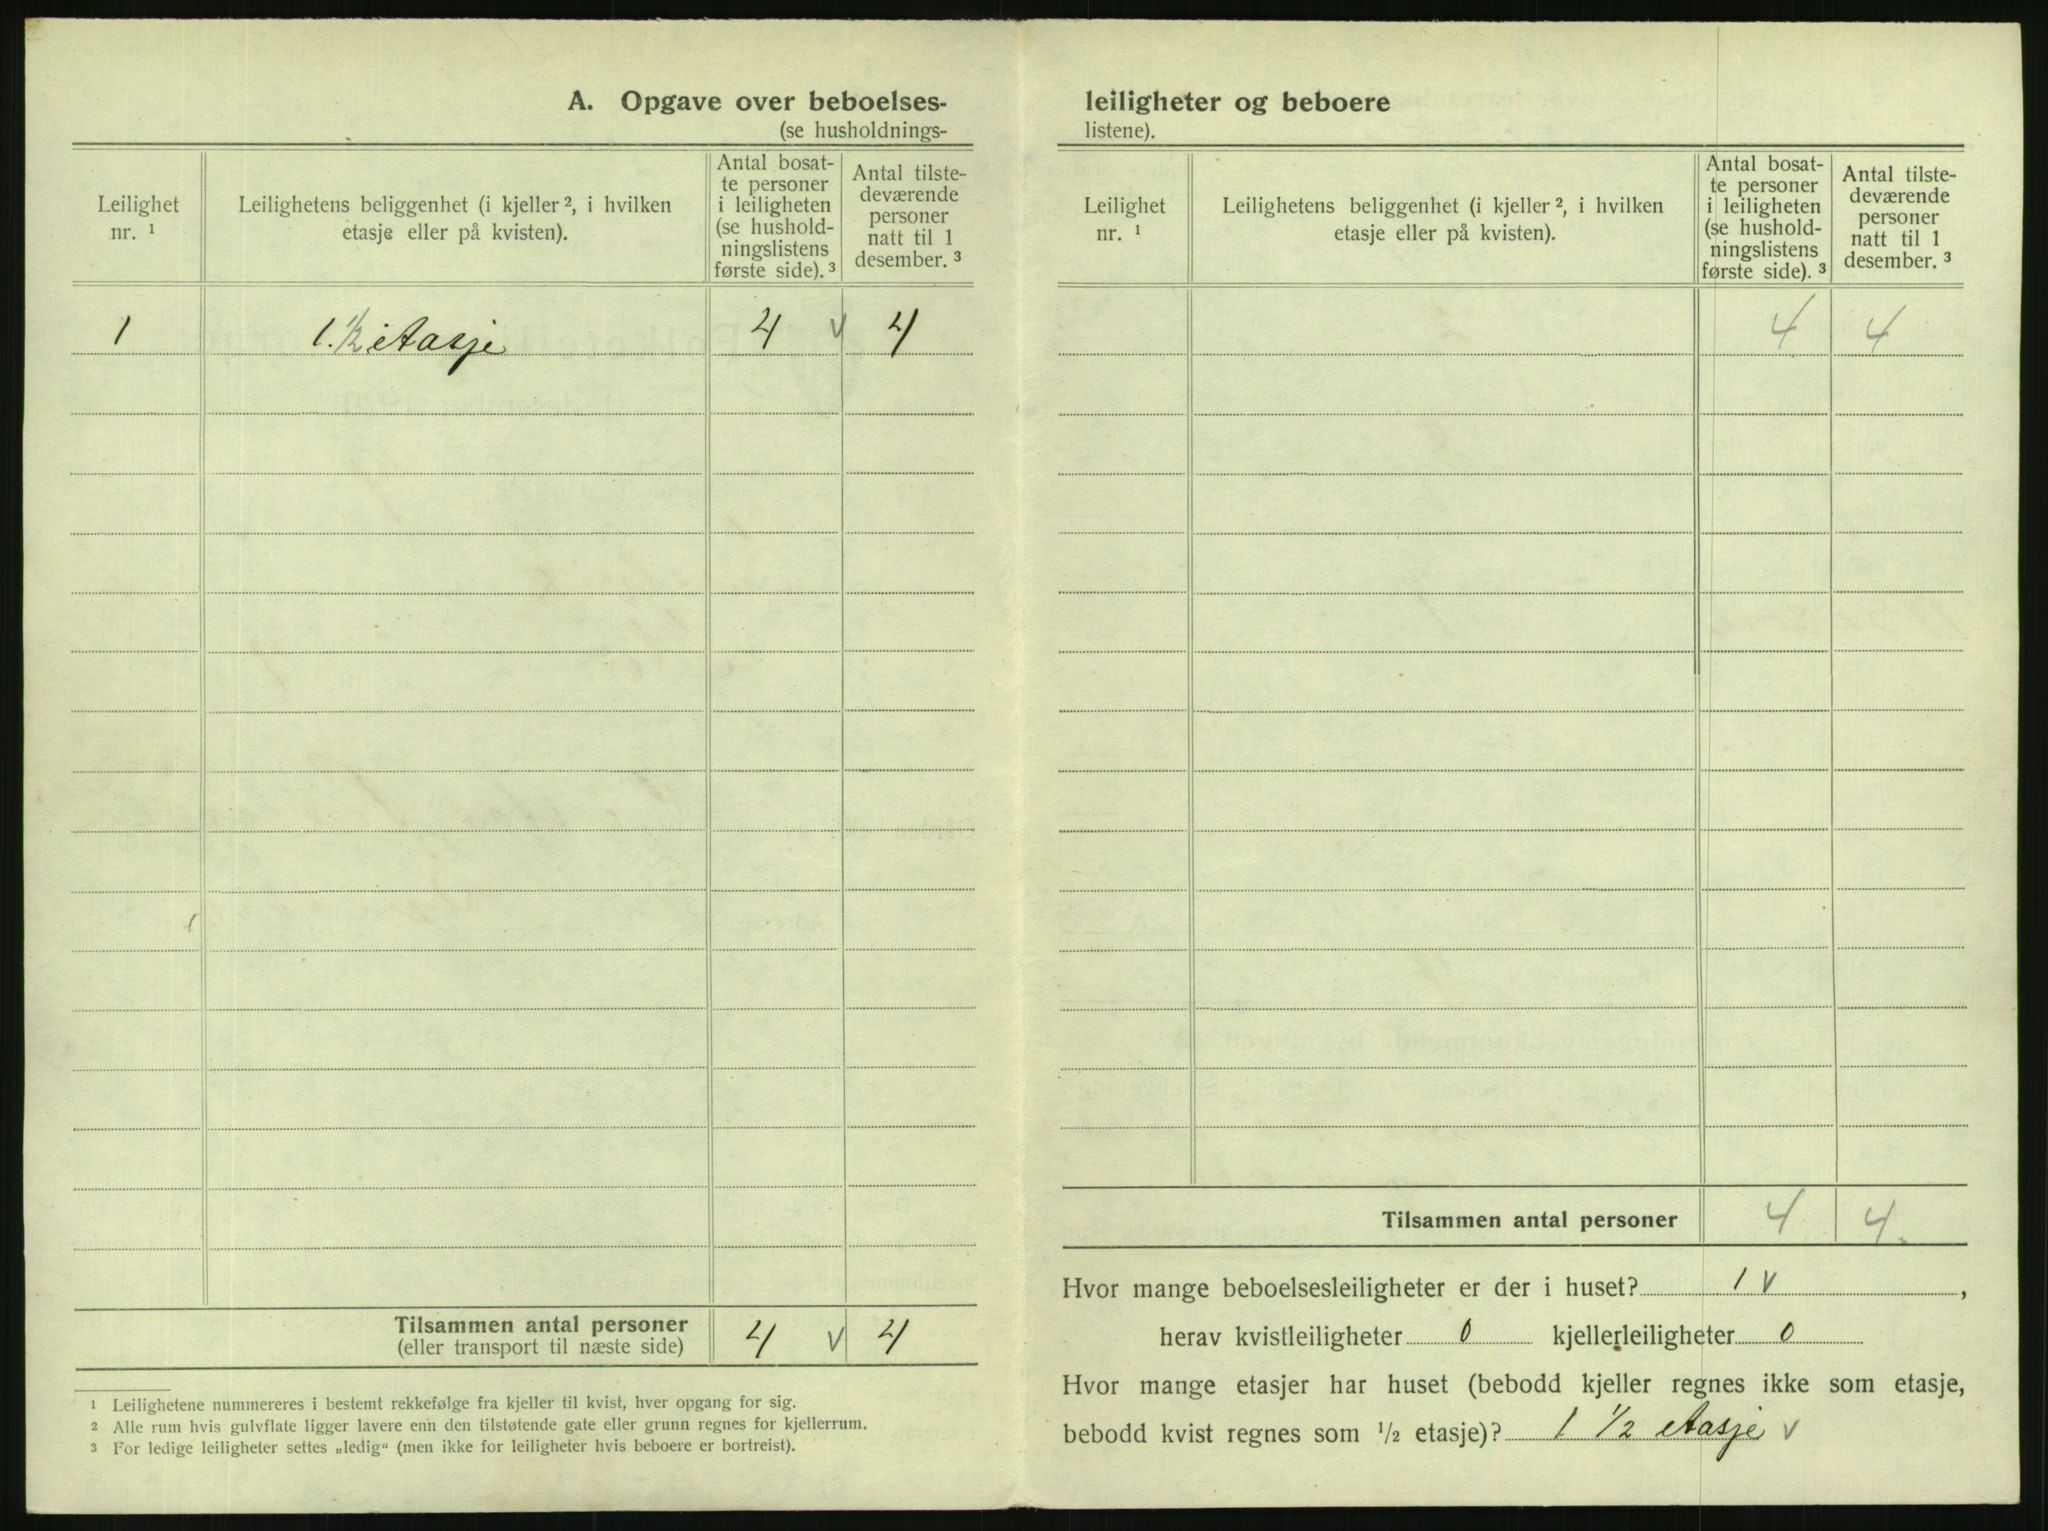 A. Opgave over beboelses-
(se husholdnings-
Leilighet
nr. ¹
Leilighetens beliggenhet (i kjeller ², i hvilken
etasje eller på kvisten).
Antal bosat-
te personer
i leiligheten
(se hushold-
ningslistens
første side). ³
Antal tilste-
deværende
personer
natt til 1
desember. ³
1 1. ½ etasje 4 v 4
Tilsammen antal personer 4 v 4
(eller transport til næste side)
¹ Leilighetene nummereres i bestemt rekkefølge fra kjeller til kvist, hver opgang for sig.
² Alle rum hvis gulvflate ligger lavere enn den tilstøtende gate eller grunn regnes for kjellerrum.
³ For ledige leiligheter settes „ledig“ (men ikke for leiligheter hvis beboere er bortreist).
leiligheter og beboere
listene).
Leilighet
nr. ¹
Leilighetens beliggenhet (i kjeller ², i hvilken
etasje eller på kvisten).
Antal bosat-
te personer
i leiligheten
(se hushold-
ningslistens
første side). ³
Antal tilste-
deværende
personer
natt til 1
desember. ³
4 4
Tilsammen antal personer 4 4.
Hvor mange beboelsesleiligheter er der i huset? 1 v ,
herav kvistleiligheter 0 kjellerleiligheter 0
Hvor mange etasjer har huset (bebodd kjeller regnes ikke som etasje,
bebodd kvist regnes som ½ etasje)? 1 ½ etasje v